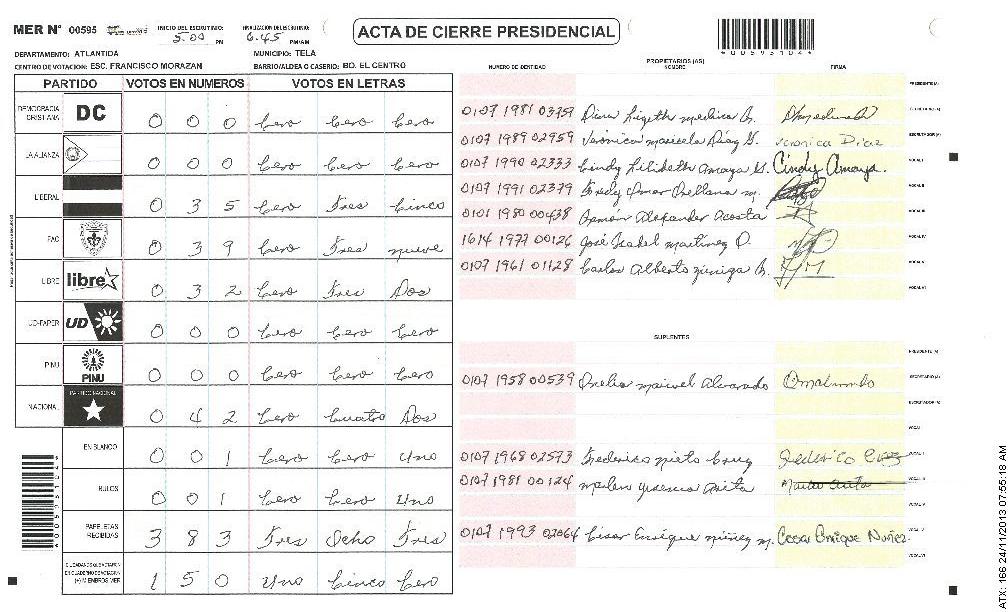 MER Nº 00595 INICIO DEL ESCRUTINIO: 5.00 PM FINALIZACIÓN DEL ESCRUTINIO: 6.45 PM/AM
ACTA DE CIERRE PRESIDENCIAL
DEPARTAMENTO: ATLANTIDA MUNICIPIO: TELA
CENTRO DE VOTACION: ESC. FRANCISCO MORAZAN BARRIO/ALDEA O CASERIO: BO. EL CENTRO
PARTIDO VOTOS EN NUMEROS VOTOS EN LETRAS
DEMOCRACIA CRISTIANA DC 0 0 0 Cero Cero Cero
LA ALIANZA 0 0 0 Cero Cero Cero
LIBERAL 0 3 5 Cero Tres Cinco
PAC 0 3 9 Cero Tres nueve
LIBRE libre 0 3 2 Cero Tres Dos
UD-FAPER UD 0 0 0 Cero Cero Cero
PINU PINU 0 0 0 Cero Cero Cero
NACIONAL PARTIDO NACIONAL 0 4 2 Cero Cuatro Dos
EN BLANCO 0 0 1 Cero Cero Uno
NULOS 0 0 1 Cero Cero Uno
PAPELETAS RECIBIDAS 3 8 3 Tres Ocho Tres
1 5 0 Uno Cinco Cero
NUMERO DE IDENTIDAD PROPIETARIOS (AS) NOMBRE FIRMA
PRESIDENTE (A)
0107 1981 03759 Lizeth medina
0107 1989 02959 Verónica maricela Díaz G. Veronica Diaz ESCRUTADOR (A)
0107 1990 02333 Cindy Lilibeth Amaya G. Cindy Amaya. VOCAL I
0107 1991 02379 Fredy Omar Orellana m. VOCAL II
0101 1980 00438 Ramón Alexander Acosta VOCAL III
1614 1977 00126 José Isabel martinez O. VOCAL IV
0107 1961 01128 Carlos Alberto zuniga VOCAL V
VOCAL VI
SUPLENTES
PRESIDENTE (A)
0107 1958 00539 manuel Alvarado SECRETARIO (A)
ESCRUTADOR (A)
VOCAL I
0107 1968 02573 Frederico nieto Cruz
0107 1981 00124 yesenia
0107 1993 02064 Cesar Enrique núñez m. Cesar Enrique Nuñez
VOCAL VI
ATX: 166 24/11/2013 07:55:18 AM